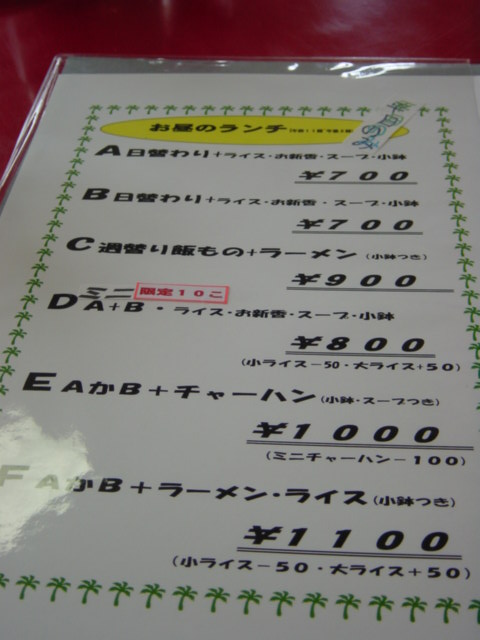 お昼のランチ
平日のみ
A日替わり+ライス・お新香・スープ・小鉢
¥700
B日替わり+ライス・お新香・スープ・小鉢
¥700
C週替り飯もの+ラーメン(小鉢つき)
¥900
限定10こ
DミニA+B・ライス・お新香・スープ・小鉢
¥800
(小ライス-50・大ライス+50)
EAかB+チャーハン(小鉢・スープつき)
¥1000
(ミニチャーハン-100)
FAかB+ラーメン・ライス(小鉢つき)
¥1100
(小ライス-50・大ライス+50)